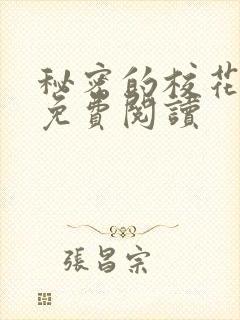 秘密的校花
免費閱讀
張昌宗